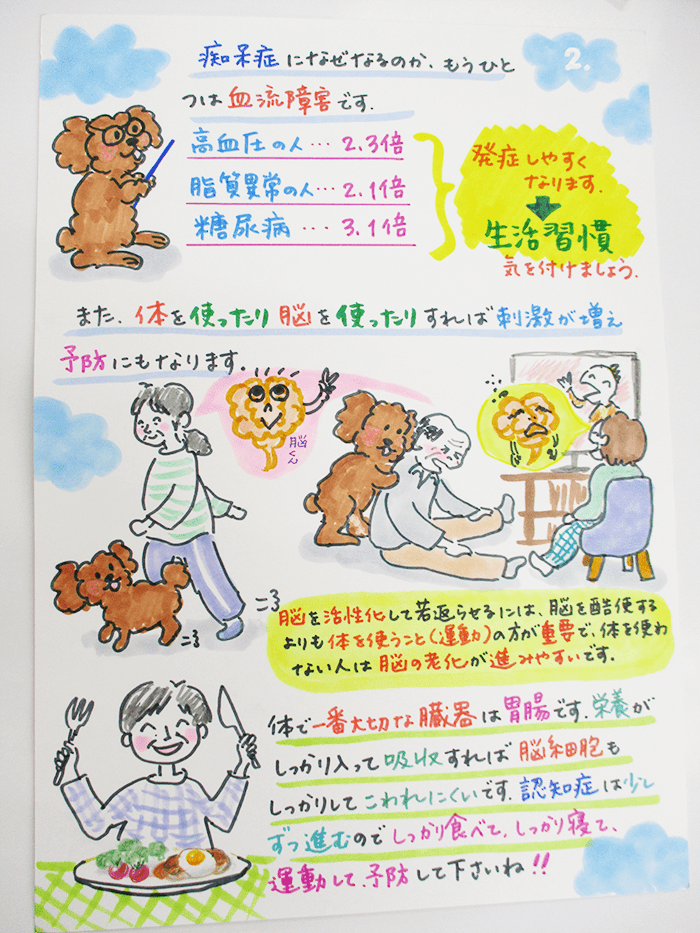 2.
痴呆症になぜなるのか、もうひと
つは血流障害です.
高血圧の人…2.3倍
脂質異常の人…2.1倍
糖尿病…3.1倍
発症しやすく
なります.
生活習慣
気を付けましょう.
また、体を使ったり脳を使ったりすれば刺激が増え
予防にもなります.
脳くん
脳を活性化して若返らせるには、脳を酷使する
よりも体を使うこと(運動)の方が重要で、体を使わ
ない人は脳の老化が進みやすいです.
体で一番大切な臓器は胃腸です.栄養が
しっかり入って吸収すれば脳細胞も
しっかりしてこわれにくいです.認知症は少し
ずつ進むのでしっかり食べて、しっかり寝て、
運動して、予防して下さいね!!